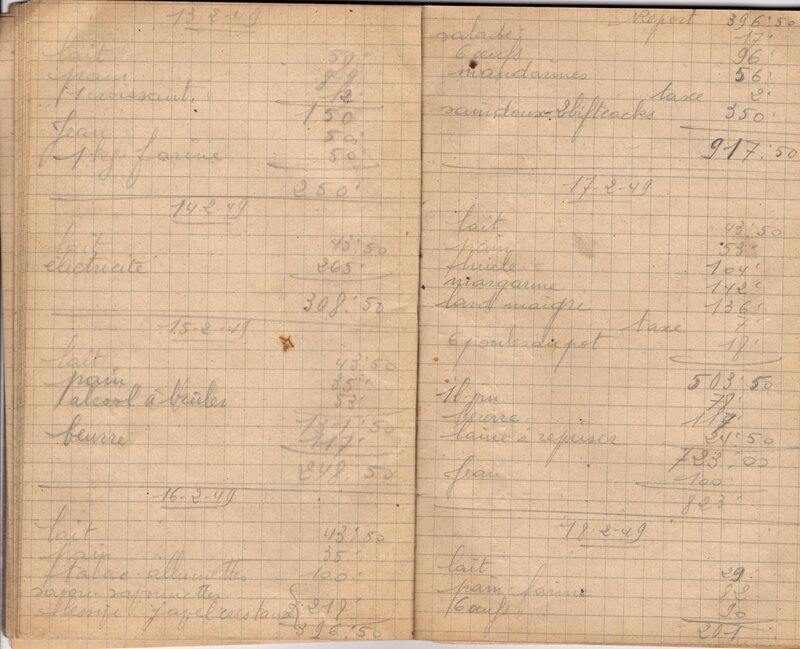 13-2-49
lait
pain
croissant 12
150
Jean 50:
1 kg. farine 50:
250:
14-2-49
lait 43:50
électricité 265:
308:50
15-2-49
lait 43:50
pain 35:
alcool à brûler 53:
131:50
beurre 117:
248:50
16-2-49
lait 43:50
pain 35:
tabac allumettes 100:
savon savonnettes
lessive javel cristaux 218:
396:50
Report 396:50
salade: 17:
6 œufs 96:
mandarines 56:
taxe 2:
saindoux-2 bifteacks 350:
917:50
17-2-49
lait 43:50
pain 53:
104:
margarine 142:
lard maigre 136:
taxe 7:
6 poules au pot 18:
503:50
78:
beurre 117:
laine à repriser 24:50
723:00
Jean 100:
823:
18-2-49
lait 29:
pain farine 82
6 œufs 90
201